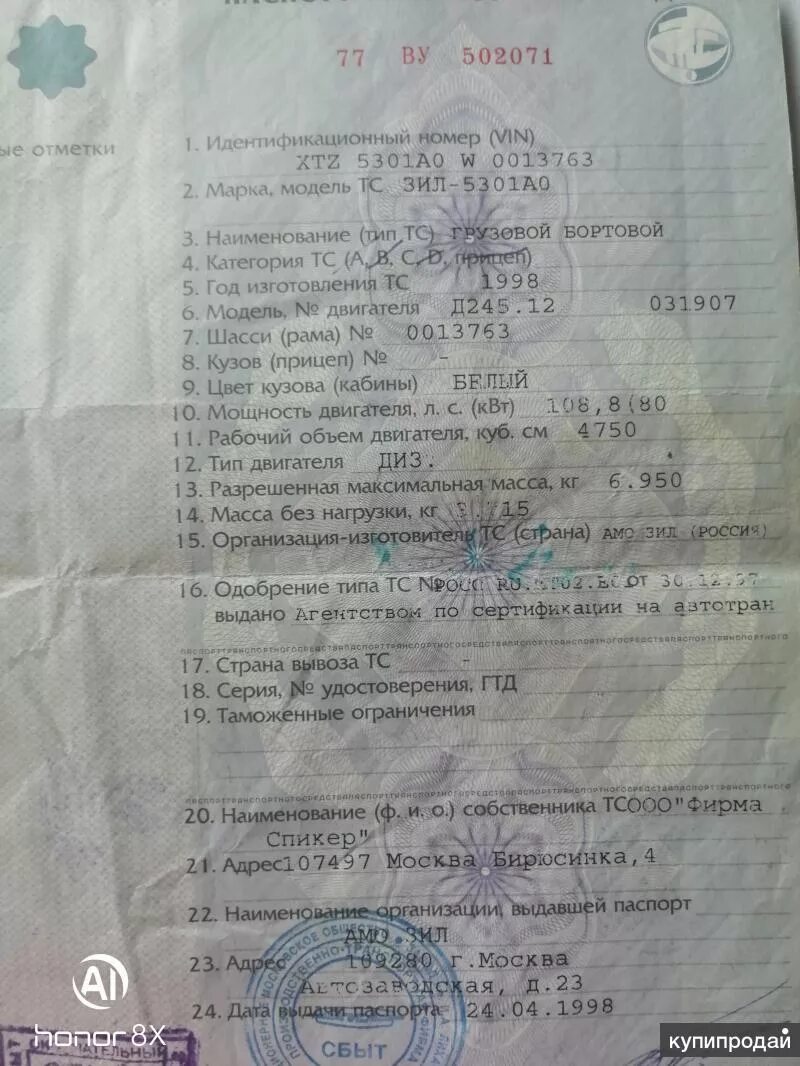 77 ВУ 502071
ые отметки
1. Идентификационный номер (VIN)
XTZ 5301A0 W 0013763
2. Марка, модель ТС ЗИЛ-5301А0
3. Наименование (тип ТС) ГРУЗОВОЙ БОРТОВОЙ
4. Категория ТС (А, В, С, D, прицеп)
5. Год изготовления ТС 1998
6. Модель, № двигателя Д245.12 031907
7. Шасси (рама) № 0013763
8. Кузов (прицеп) № -
9. Цвет кузова (кабины) БЕЛЫЙ
10. Мощность двигателя, л. с. (кВт) 108,8(80
11. Рабочий объем двигателя, куб. см 4750
12. Тип двигателя ДИЗ.
13. Разрешенная максимальная масса, кг 6.950
14. Масса без нагрузки, кг
15. Организация-изготовитель ТС (страна) АМО ЗИЛ (РОССИЯ)
16. Одобрение типа ТС № от 30.12.97
выдано Агентством по сертификации на автотран
17. Страна вывоза ТС -
18. Серия, № удостоверения, ГТД
19. Таможенные ограничения
20. Наименование (ф. и. о.) собственника ТС ООО "Фирма
Спикер"
21. Адрес 107497 Москва Бирюсинка,4
22. Наименование организации, выдавшей паспорт
АМО ЗИЛ
23. Адрес 109280 г.Москва
Автозаводская, д.23
24. Дата выдачи паспорта 24.04.1998
СБЫТ
AI
honor 8X
купипродай